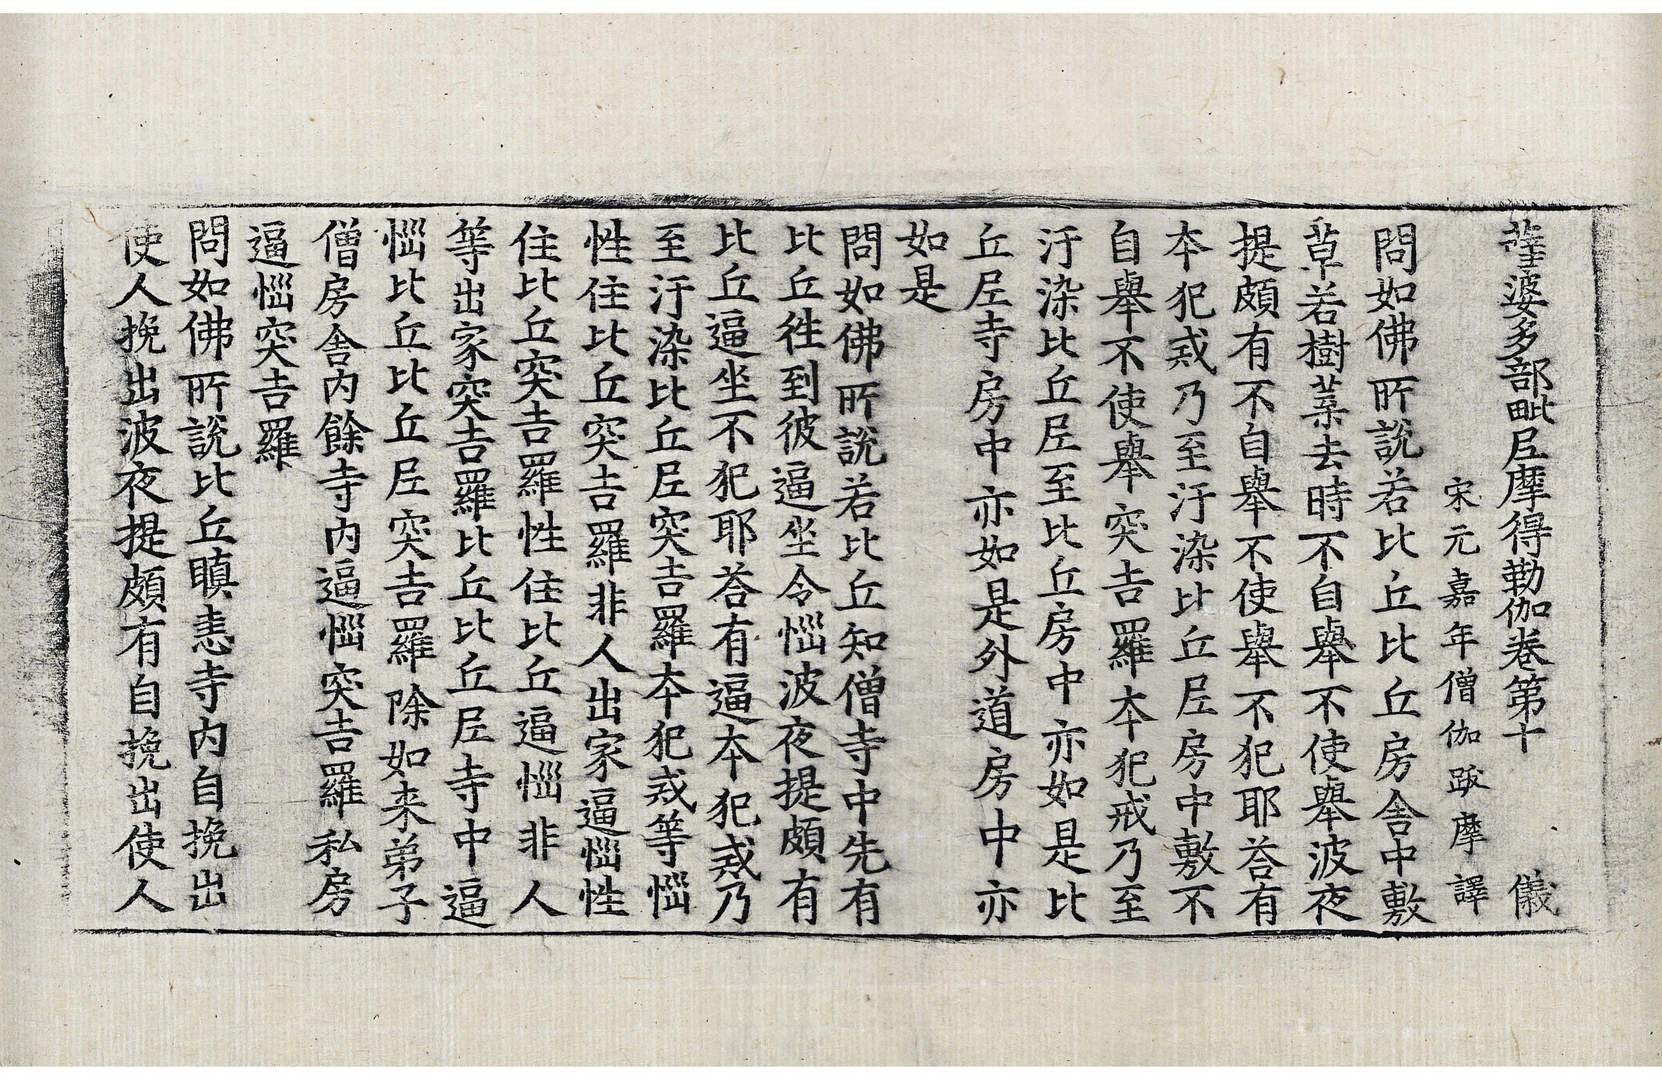 薩婆多部毗尼摩得勒伽卷第十　儀
宋元嘉年僧伽跋摩譯
問如佛所說若比丘比丘房舍中敷
草若樹葉去時不自舉不使舉波夜
提頗有不自舉不使舉不犯耶荅有
本犯戒乃至汙染比丘尼房中敷不
自舉不使舉突吉羅本犯戒乃至
汙染比丘尼至比丘房中亦如是比
丘尼寺房中亦如是外道房中亦
如是
問如佛所說若比丘知僧寺中先有
比丘徃到彼逼坐令惱波夜提頗有
比丘逼坐不犯耶荅有逼本犯戒乃
至汙染比丘尼突吉羅本犯戒等惱
性住比丘突吉羅非人出家逼惱性
住比丘突吉羅性住比丘逼惱非人
等出家突吉羅比丘比丘尼寺中逼
惱比丘比丘尼突吉羅除如来弟子
僧房舍內餘寺內逼惱突吉羅私房
逼惱突吉羅
問如佛所說比丘瞋恚寺內自挽出
使人挽出波夜提頗有自挽出使人